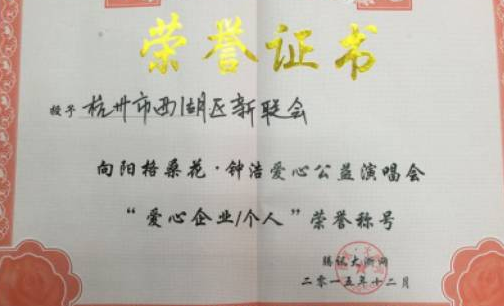 荣誉证书
授予 杭州市西湖区新联会
向阳格桑花·钟浩爱心公益演唱会
“爱心企业/个人”荣誉称号
腾讯大浙网
二零一五年十二月